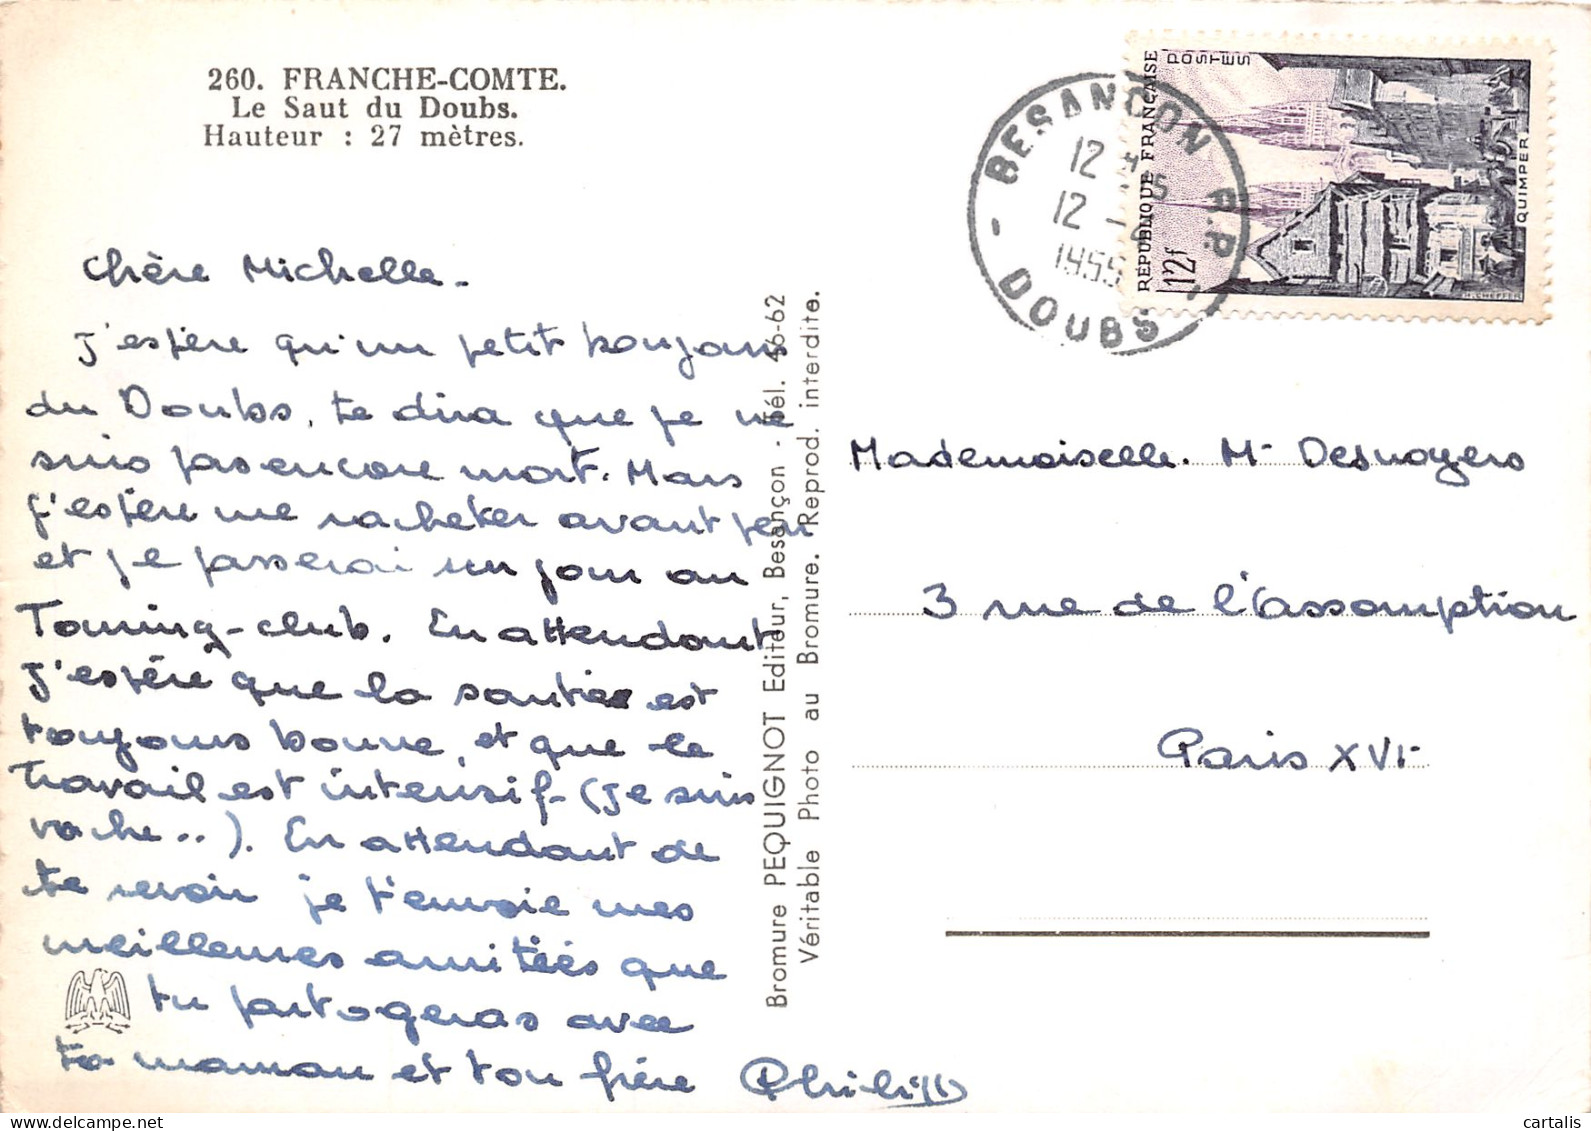 260. FRANCHE-COMTE.
Le Saut du Doubs.
Hauteur : 27 mètres.
Chère Michelle-
J'espère qu'un petit bonjour
du Doubs, te dira que je ne
suis pas encore mort. Mais
j'espère me racheter avant peu
et je passerai un jour au
Touring-club. En attendant
j'espère que la santé est
toujours bonne, et que le
travail est intensif- (je suis
vache..). En attendant de
te revoir je t'envoie mes
meilleures amitiés que
tu partageras avec
ta maman et ton frère Philipp
Bromure PEQUIGNOT Editeur, Besançon - Tél. 46-62
Véritable Photo au Bromure. Reprod. interdite.
BESANÇON R.P.
12 H
12 -
1955
DOUBS
REPUBLIQUE FRANÇAISE
POSTES
12f
QUIMPER
H. CHEFFER
Mademoiselle. M- Desnoyers
3 rue de l'Assomption
Paris XVI-
cartalis